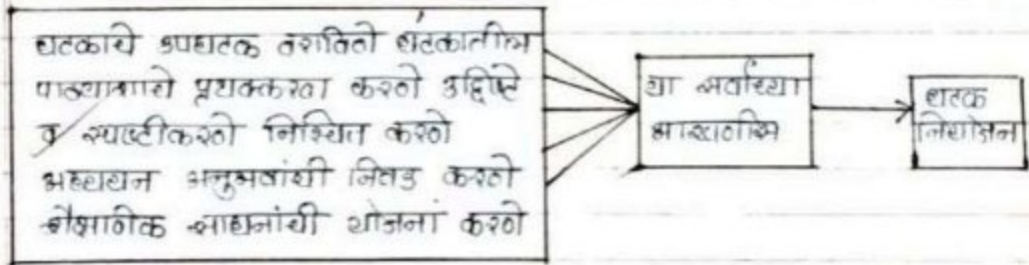 घटकाचे उपघटक ठरावितो घटकातील
पाठ्यांशाचे पृथक्करण करणे उद्दिष्टे
व स्पष्टीकरणे निश्चित करणे
अध्ययन अनुभवांची निवड करणे
शैक्षणिक साधनांची योजना करणे
या सर्वांच्या
घटक
नियोजन